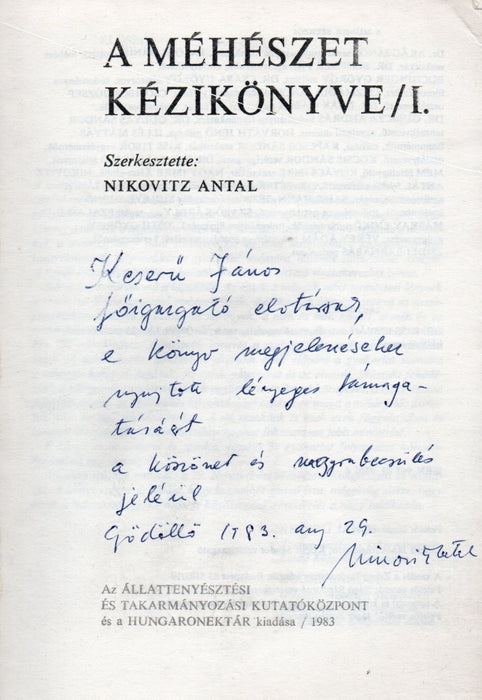 A MÉHÉSZET
KÉZIKÖNYVE/I.
Szerkesztette:
NIKOVITZ ANTAL
Keserű János
főigazgató elvtársnak,
e könyv megjelenéséhez
nyujtott lényeges támoga-
tásáért
a köszönet és nagyrabecsülés
jeléül
Gödöllő 1983. aug 29.
Az ÁLLATTENYÉSZTÉSI
ÉS TAKARMÁNYOZÁSI KUTATÓKÖZPONT
és a HUNGARONEKTÁR kiadása / 1983